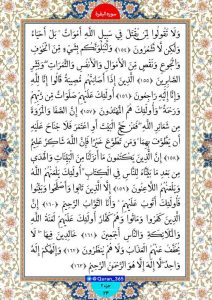 سوره البقرة
وَلَا تَقُولُوا لِمَنْ يُقْتَلُ فِي سَبِيلِ اللَّهِ أَمْوَاتٌ بَلْ أَحْيَاءٌ
وَلَكِنْ لَا تَشْعُرُونَ (١٥٤) وَلَنَبْلُوَنَّكُمْ بِشَيْءٍ مِنَ الْخَوْفِ
وَالْجُوعِ وَنَقْصٍ مِنَ الْأَمْوَالِ وَالْأَنْفُسِ وَالثَّمَرَاتِ وَبَشِّرِ
الصَّابِرِينَ (١٥٥) الَّذِينَ إِذَا أَصَابَتْهُمْ مُصِيبَةٌ قَالُوا إِنَّا لِلَّهِ
وَإِنَّا إِلَيْهِ رَاجِعُونَ (١٥٦) أُولَئِكَ عَلَيْهِمْ صَلَوَاتٌ مِنْ رَبِّهِمْ
وَرَحْمَةٌ وَأُولَئِكَ هُمُ الْمُهْتَدُونَ (١٥٧) إِنَّ الصَّفَا وَالْمَرْوَةَ
مِنْ شَعَائِرِ اللَّهِ فَمَنْ حَجَّ الْبَيْتَ أَوِ اعْتَمَرَ فَلَا جُنَاحَ عَلَيْهِ
أَنْ يَطَّوَّفَ بِهِمَا وَمَنْ تَطَوَّعَ خَيْرًا فَإِنَّ اللَّهَ شَاكِرٌ عَلِيمٌ
(١٥٨) إِنَّ الَّذِينَ يَكْتُمُونَ مَا أَنْزَلْنَا مِنَ الْبَيِّنَاتِ وَالْهُدَى
مِنْ بَعْدِ مَا بَيَّنَّاهُ لِلنَّاسِ فِي الْكِتَابِ أُولَئِكَ يَلْعَنُهُمُ اللَّهُ
وَيَلْعَنُهُمُ اللَّاعِنُونَ (١٥٩) إِلَّا الَّذِينَ تَابُوا وَأَصْلَحُوا وَبَيَّنُوا
فَأُولَئِكَ أَتُوبُ عَلَيْهِمْ وَأَنَا التَّوَّابُ الرَّحِيمُ (١٦٠) إِنَّ
الَّذِينَ كَفَرُوا وَمَاتُوا وَهُمْ كُفَّارٌ أُولَئِكَ عَلَيْهِمْ لَعْنَةُ اللَّهِ
وَالْمَلَائِكَةِ وَالنَّاسِ أَجْمَعِينَ (١٦١) خَالِدِينَ فِيهَا لَا
يُخَفَّفُ عَنْهُمُ الْعَذَابُ وَلَا هُمْ يُنْظَرُونَ (١٦٢) وَإِلَهُكُمْ إِلَهٌ
وَاحِدٌ لَا إِلَهَ إِلَّا هُوَ الرَّحْمَنُ الرَّحِيمُ (١٦٣)
@Quran_365
جزء ٢
٢۴